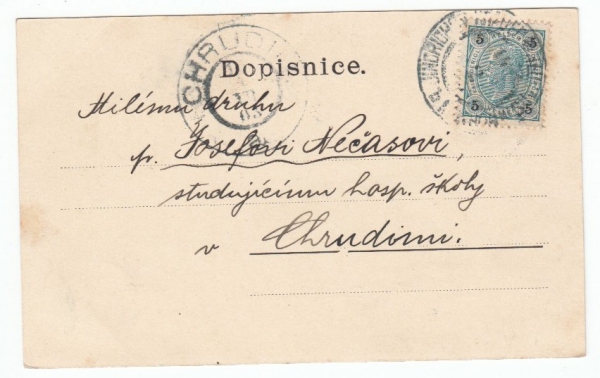 CHRUDI
Dopisnice.
5 5
5 5
Milému druhu
p. Josefovi Nečasovi,
studujícímu hosp. školy
v Chrudimi.